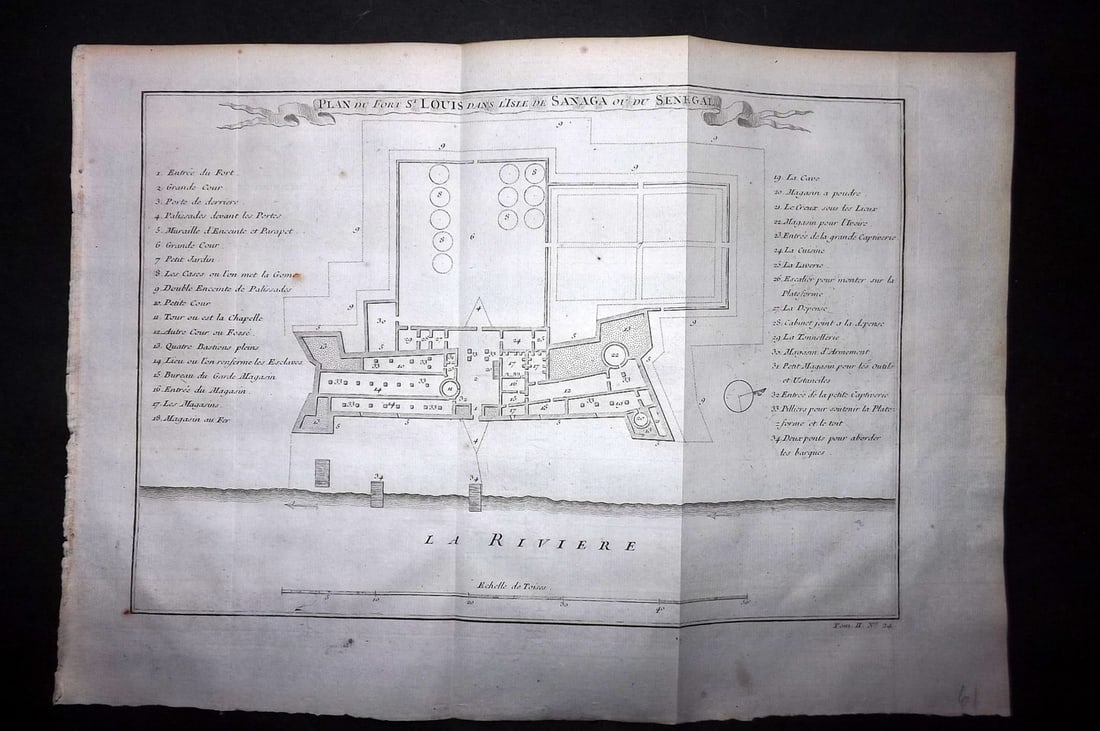 PLAN DU FORT St LOUIS DANS L'ISLE DE SANAGA OU DU SENEGAL
1. Entrée du Fort
2. Grande Cour
3. Porte de derriere
4. Palissades devant les Portes
5. Muraille d'Enceinte et Parapet
6. Grande Cour
7. Petit Jardin
8. Les Cases ou l'on met la Gome
9. Double Enceinte de Palissades
10. Petite Cour
11. Tour ou est la Chapelle
12. Autre Cour ou Fossé
13. Quatre Bastions pleins
14. Lieu ou l'on renferme les Esclaves
15. Bureau du Garde Magasin
16. Entrée du Magasin
17. Les Magasins
18. Magasin au Fer
19. La Cave
20. Magasin a poudre
21. Le Creux sous les Lieux
22. Magasin pour l'Ivoire
23. Entrée de la grande Captiverie
24. La Cuisine
25. La Laverie
26. Escalier pour monter sur la
Plateforme
27. La Depense
28. Cabinet joint a la depense
29. La Tonnellerie
30. Magasin d'Armement
31. Petit Magasin pour les Outils
et Ustanciles
32. Entrée de la petite Captiverie
33. Pilliers pour soutenir la Plate-
forme et le toit
34. Deux ponts pour aborder
les barques
LA RIVIERE
Echelle de Toises
5 10 20 30 40 50
Tom. II. No. 24